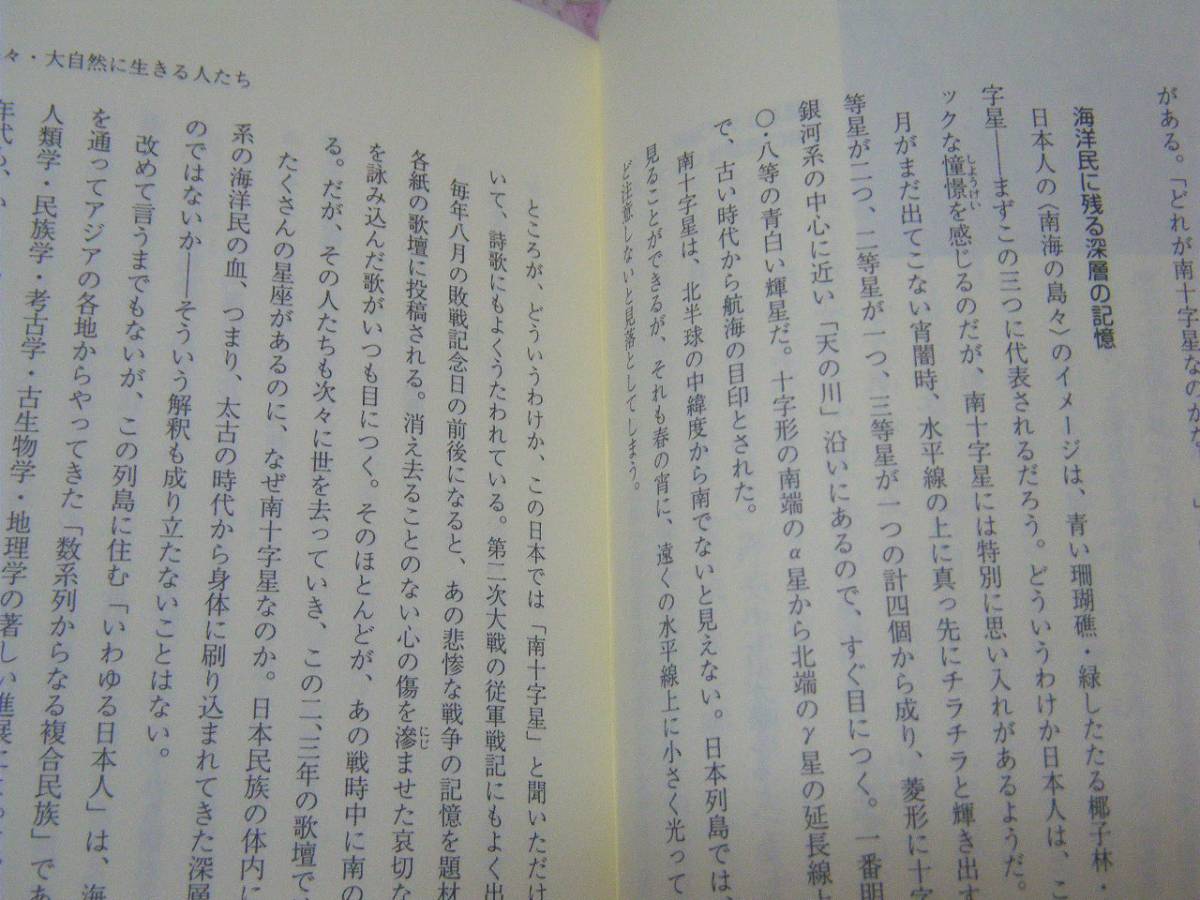 がある。「どれが南十字星なのかな
海洋民に残る深層の記憶
日本人の〈南海の島々〉のイメージは、青い珊瑚礁・緑したたる椰子林・
字星――まずこの三つに代表されるだろう。どういうわけか日本人は、こ
ックな憧憬を感じるのだが、南十字星には特別に思い入れがあるようだ。
しようけい
月がまだ出てこない宵闇時、水平線の上に真っ先にチラチラと輝き出す
等星が二つ、二等星が一つ、三等星が一つの計四個から成り、菱形に十字
銀河系の中心に近い「天の川」沿いにあるので、すぐ目につく。一番明
〇・八等の青白い輝星だ。十字形の南端のα星から北端のγ星の延長線上
で、古い時代から航海の目印とされた。
南十字星は、北半球の中緯度から南でないと見えない。日本列島では、
見ることができるが、それも春の宵に、遠くの水平線上に小さく光って
ど注意しないと見落としてしまう。
々・大自然に生きる人たち
ところが、どういうわけか、この日本では「南十字星」と聞いただけ
いて、詩歌にもよくうたわれている。第二次大戦の従軍戦記にもよく出
毎年八月の敗戦記念日の前後になると、あの悲惨な戦争の記憶を題材
各紙の歌壇に投稿される。消え去ることのない心の傷を滲ませた哀切な
にじ
を詠み込んだ歌がいつも目につく。そのほとんどが、あの戦時中に南の
る。だが、その人たちも次々に世を去っていき、この二、三年の歌壇で
たくさんの星座があるのに、なぜ南十字星なのか。日本民族の体内に
系の海洋民の血、つまり、太古の時代から身体に刷り込まれてきた深層
のではないか――そういう解釈も成り立たないことはない。
改めて言うまでもないが、この列島に住む「いわゆる日本人」は、海
を通ってアジアの各地からやってきた「数系列からなる複合民族」であ
人類学・民族学・考古学・古生物学・地理学の著しい進展によって
年代も、か